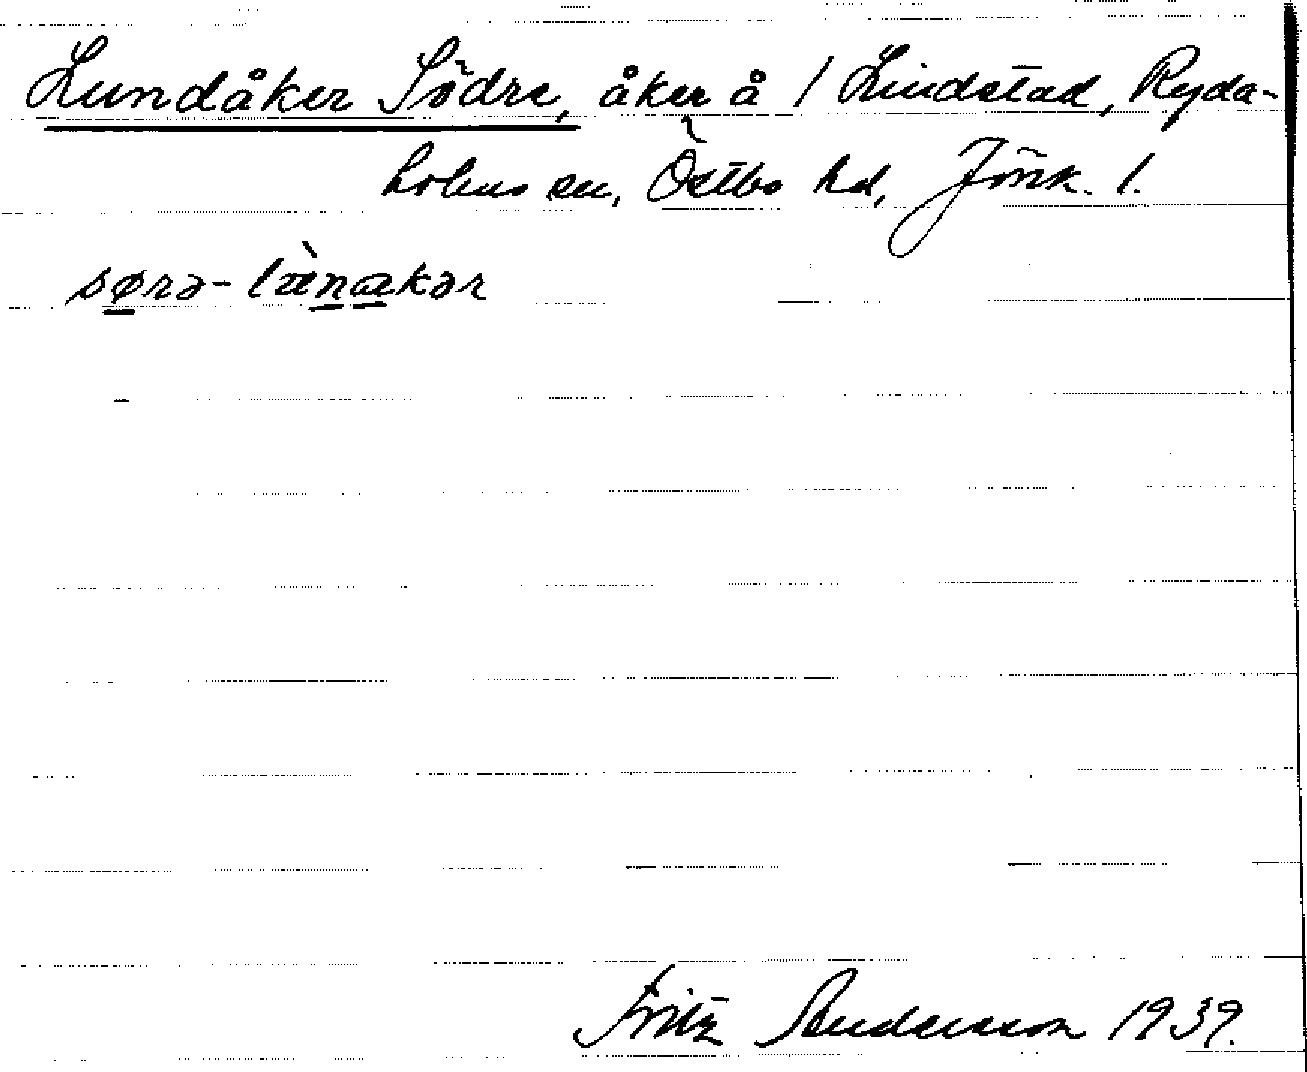 Lundåker Södre, åker å 1 Lindstad, Ryda-
holms sn, Östbo hd, Jönk. l.
Fritz Andersson 1939.